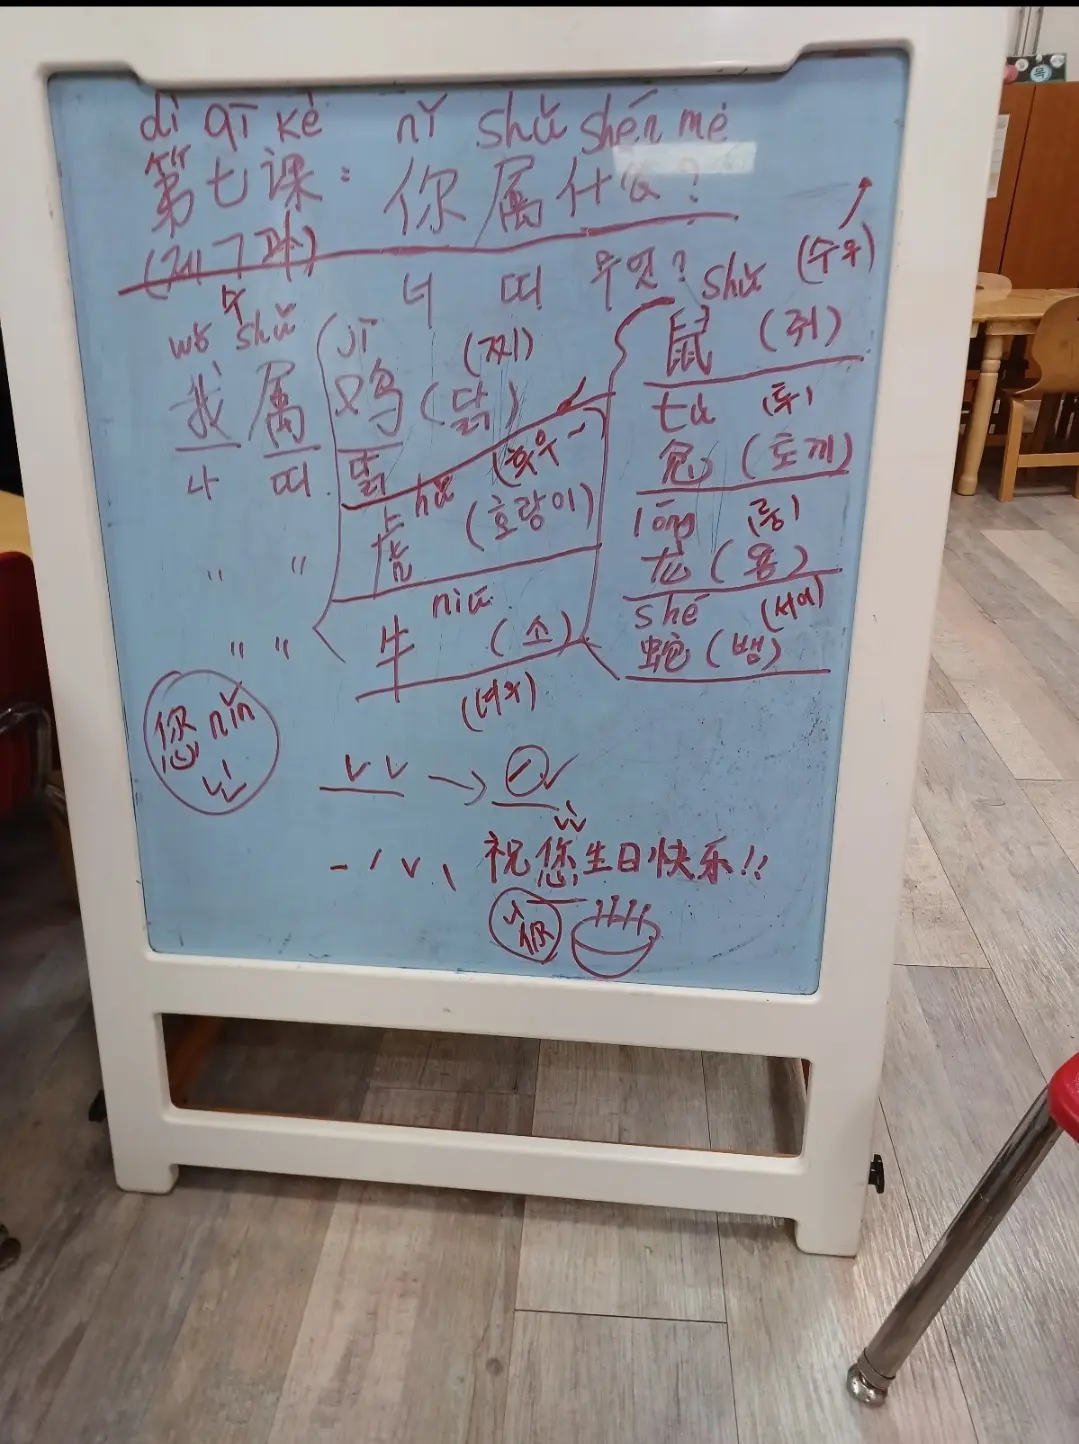 dì qī kè nǐ shǔ shén me
第七课: 你属什么?
(제 7 과)
너 띠 무엇?
wǒ shǔ
我属
나 띠
" "
" "
jī (찌)
鸡 (닭)
닭
hǔ (호랑이)
虎
niú
牛 (소)
shǔ (수우)
鼠 (쥐)
tù (투)
兔 (토끼)
lóng (롱)
龙 (용)
shé (서어)
蛇 (뱀)
您 nín
닌
ˇ ˇ → ˊ ˇ
ˉ ˊ ˇ ˋ
祝您生日快乐!!
니
你
목